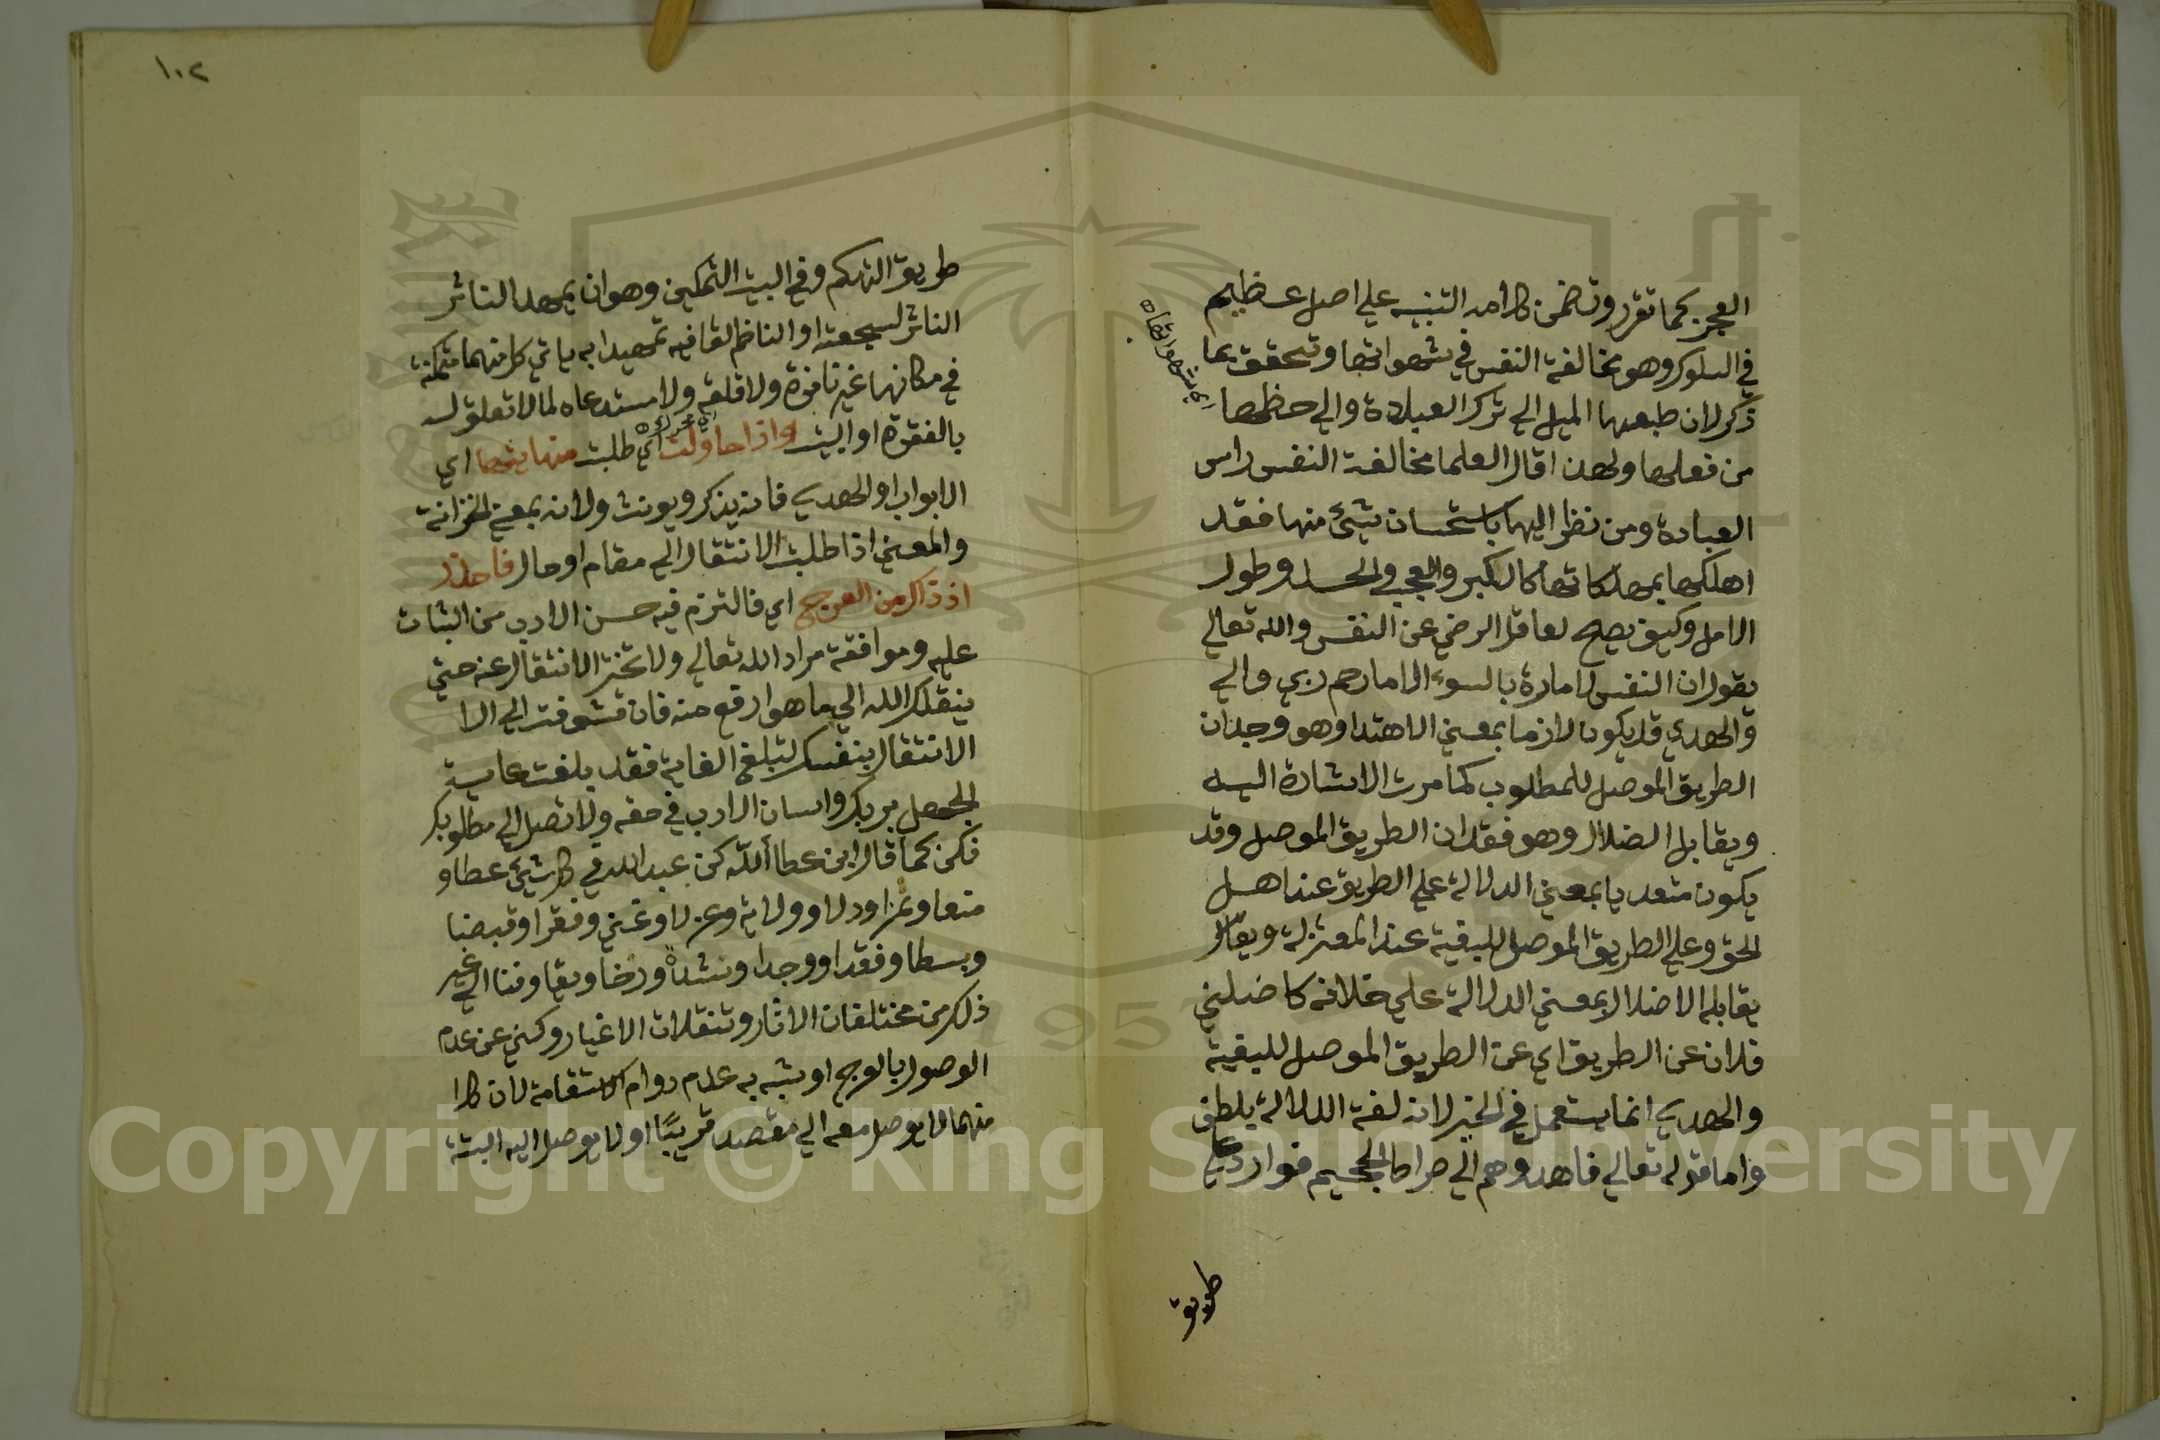 العجز كما تقرر وتضمن كلامه التنبيه علي اصل عظيم
في السلوك وهو مخالفة النفس في شهواتها وتحقق بما
ذكر لان طبعها الميل الي ترك العبادة والي حظها
من فعلها ولهذا قال العلما مخالفة النفس راس
العبادة ومن نظر اليها باستحسان شيئ منها فقد
اهلكها بمهلكاتها كالكبر والعجب والحسد وطول
الامل وكيف يصح لعاقل الرضي عن النفس والله تعالي
يقول ان النفس لامارة بالسوء الا ما رحم ربي والي
والهدي قد يكون لازما بمعني الاهتدا وهو وجدان
الطريق الموصل للمطلوب كما مرت الاشارة اليه
ويقابل الضلال وهو فقدان الطريق الموصل وقد
يكون متعديا بمعني الدلالة علي الطريق عند اهل
الحق وعلي الطريق الموصل للبقية عند المعتزلة ويقال
يقابله الاضلال بمعني الدلالة علي خلافه كاضلني
فلان عن الطريق اي عن الطريق الموصل للبقية
والهدي انما يستعمل في الخير لانه لغة الدلالة بلطف
واما قوله تعالي فاهدوهم الي صراط الجحيم فوارد علي
طريق
اي بشهواتها
١٠٢
طريق التهكم وفي البيت التمكين وهو ان يمهد الناثر
الناثر لسجعته او الناظم لقافيه تمهيدا به ياتي كل منهما متمكنة
في مكانها غير نافرة ولا قلقة ولا مستدعاه لما لا تعلق له
بالفقرة او البيت واذا حاولت اي طلبت منهايتها اي
الابواب او الهدي فانه يذكر ويونث ولانه بمعني الخزانة
والمعني اذا طلبت الانتقال الي مقام او حال فاحذر
اذ ذاك من العرج اي فالتزم فيه حسن الادب من الثبات
عليه وموافقة مراد الله تعالي ولا تختر الانتقال عنه حتي
ينقلك الله الي ما هو ارفع منه فان تشوفت الي الا
الانتقال بنفسك لتبلغ الغاية فقد بلغت غاية
الجهل بربك واسات الادب في حقه ولا تصل الي مطلوبك
فكن كما قال ابن عطا الله كن عبد الله في كل شيئ عطا و
منعا وعزا وذلا وولاية وعزلا وغني وفقرا وقبضا
وبسطا وفقدا ووجدا وشدة ورخا وبقا وفنا الي غير
ذلك من مختلفات الاثار وتنقلات الاغيار وكني عن عدم
الوصول بالعرج او شبه به عدم دوام الاستقامة لان كلا
منهما لا يوصل معه الي مقصد قريبا او لا يوصل اليه البتة
Copyright © King Saud University
195